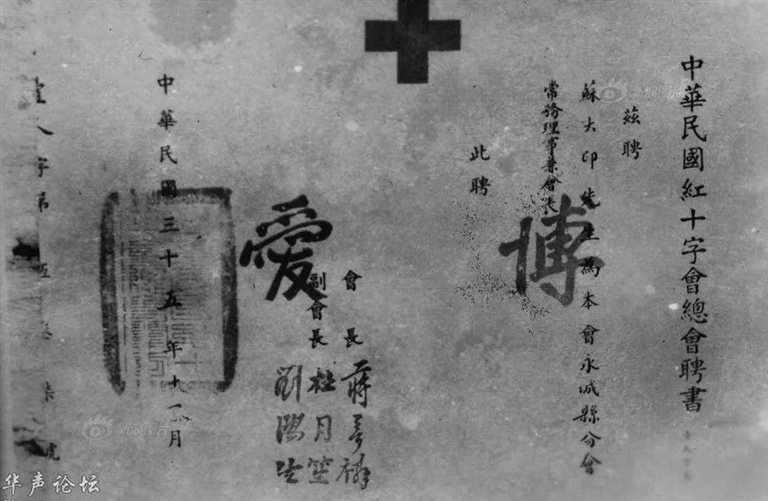 中華民國紅十字會總會聘書
茲聘
蘇大印先生為本會永城縣分會
常務理事兼會長
此聘
博愛
會長 蔣夢麟
副會長 杜月笙
劉鴻生
中華民國三十五年十一月
人字第伍柒號
华声论坛